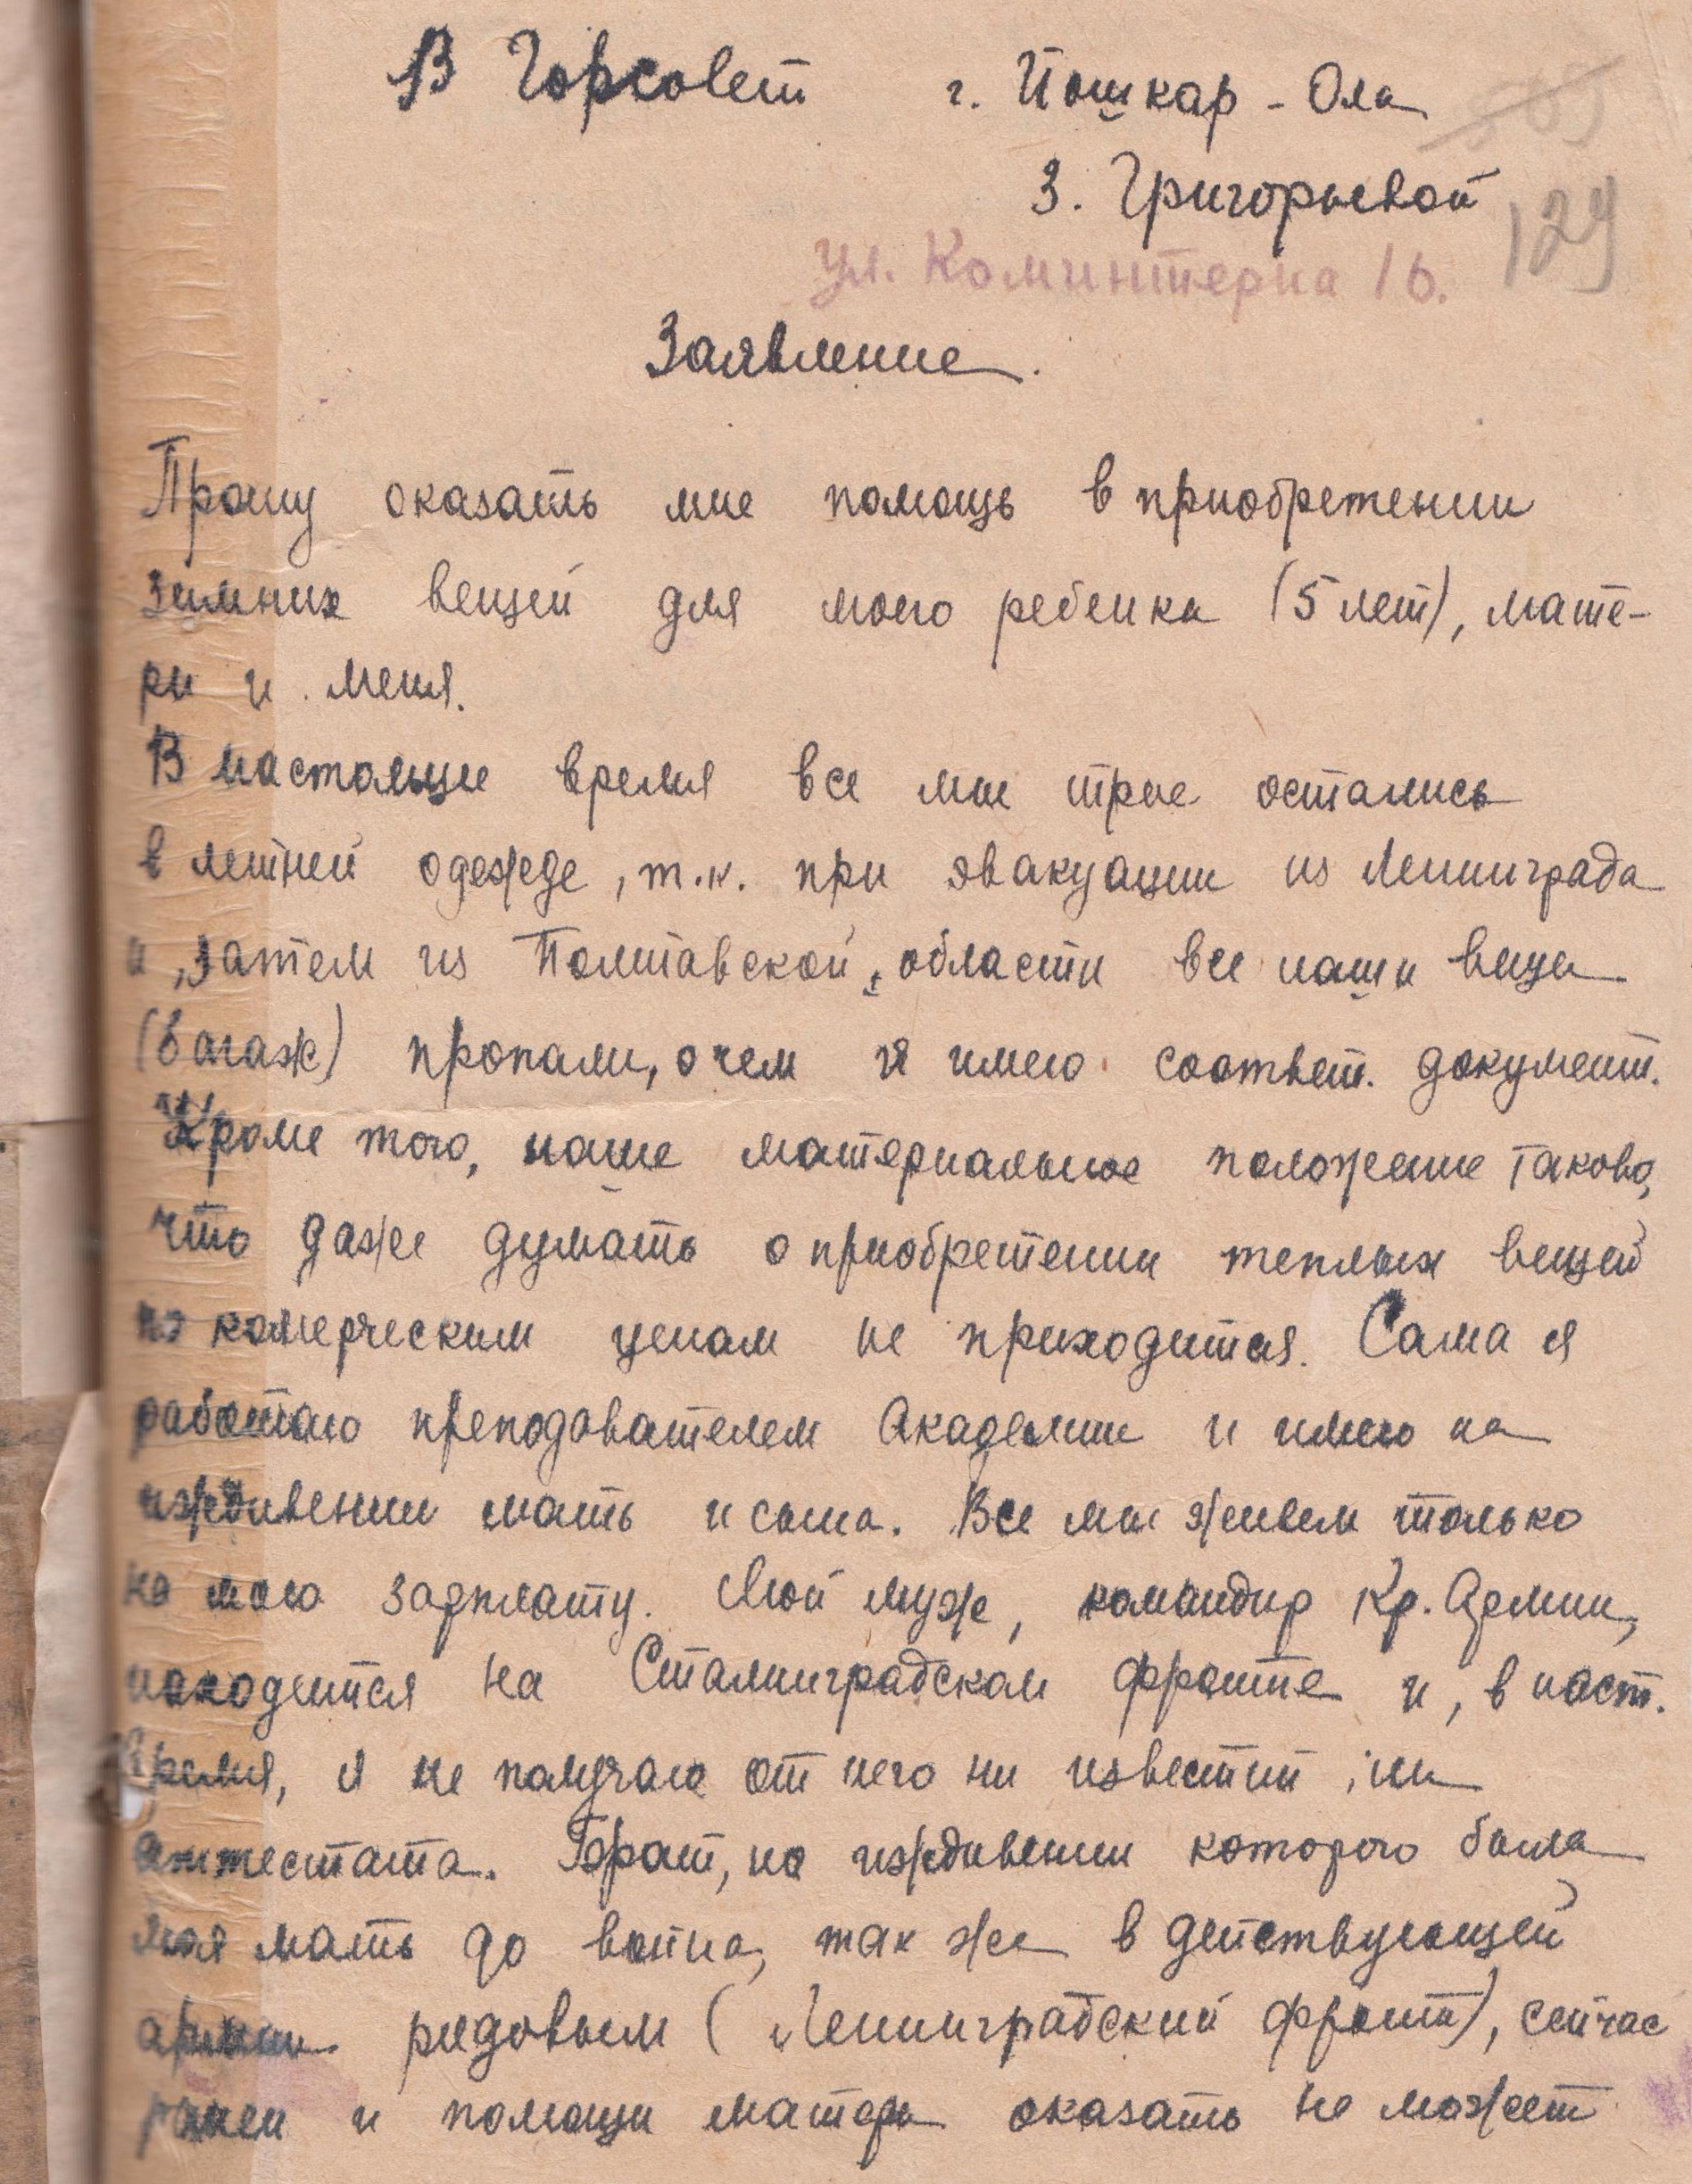 В Горсовет г. Йошкар-Ола
З. Григорьевой
129
ул. Коминтерна 16.
Заявление.
Прошу оказать мне помощь в приобретении
зимних вещей для моего ребенка (5 лет), мате-
ри и меня.
В настоящее время все мы трое остались
в летней одежде, т.к. при эвакуации из Ленинграда
и, затем из Полтавской области все наши вещи
(багаж) пропали, о чем я имею соответ. документ.
Кроме того, наше материальное положение таково,
что даже думать о приобретении теплых вещей
по комерческим ценам не приходится. Сама я
работаю преподавателем Академии и имею на
иждивении мать и сына. Все мы живем только
на мою зарплату. Мой муж, командир Кр. Армии,
находится на Сталинградском фронте и, в наст.
время, я не получаю от него ни известий, ни
аттестата. Брат, на иждивении которого была
моя мать до войны, так же в действующей
армии рядовым (Ленинградский фронт), сейчас
ранен и помощи матери оказать не может